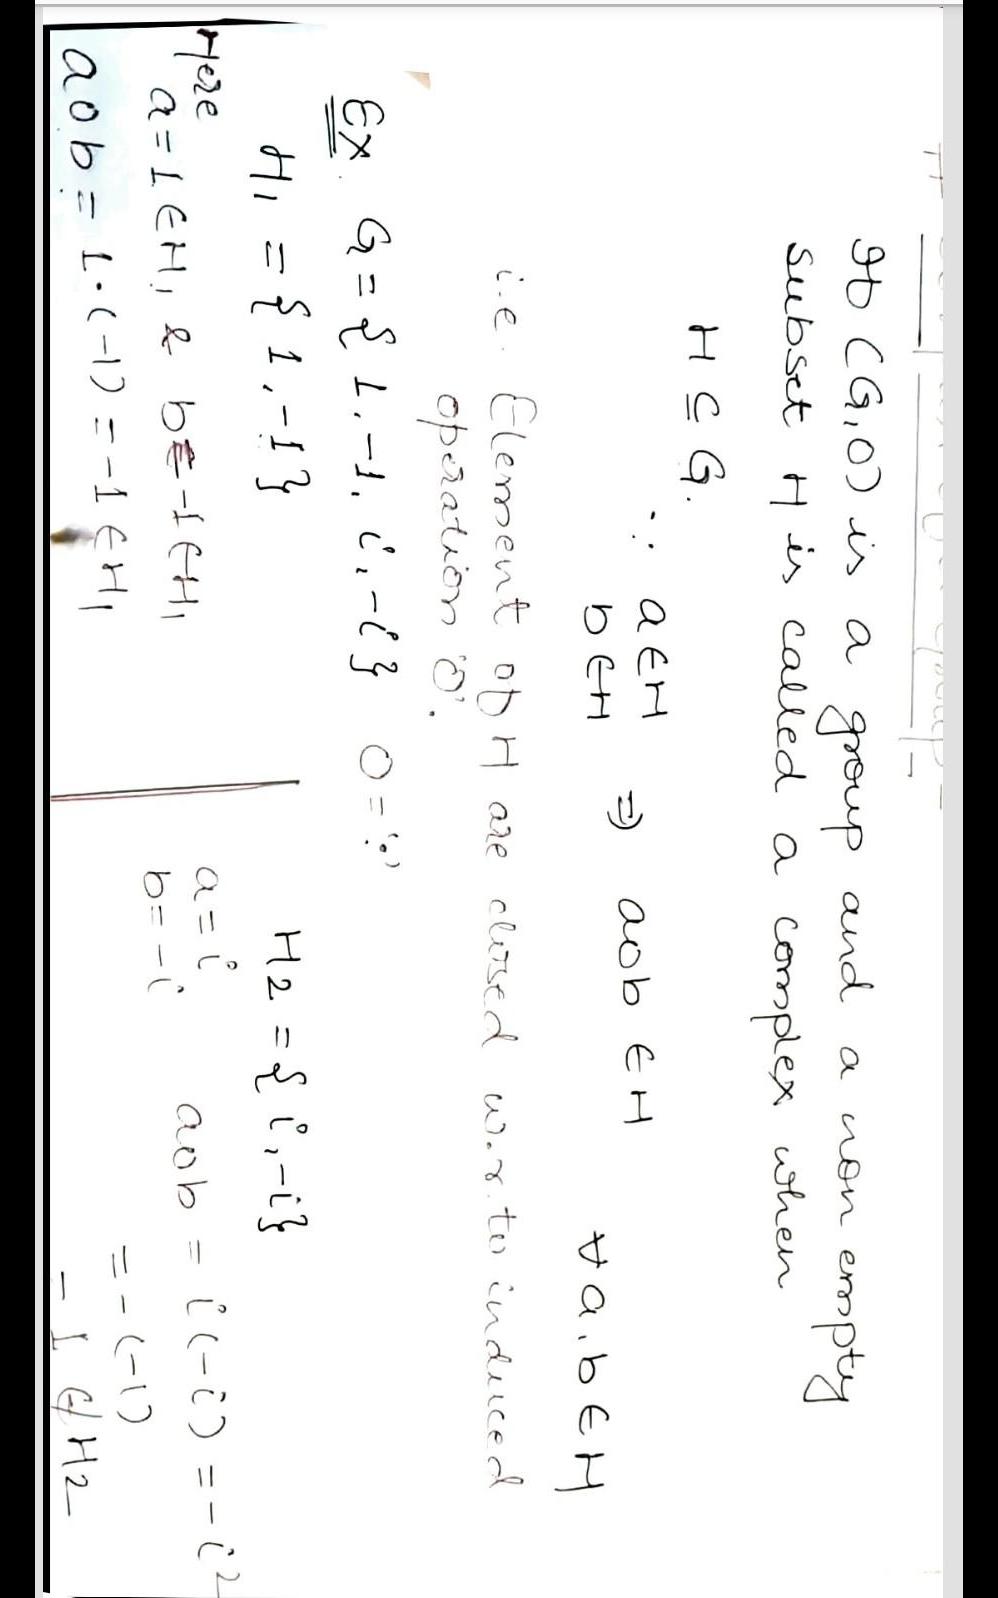 If (G,O) is a group and a non empty
subset H is called a complex when
H ⊆ G.
∵ a∈H
b∈H ⇒ aob ∈ H ∀ a,b ∈ H
i.e. Element of H are closed w.r.to induced
operation 'O'.
Ex. G = { 1, -1, i, -i } O = '·'
H₁ = { 1, -1 }
Here
a = 1 ∈ H₁ & b = -1 ∈ H₁
aob = 1·(-1) = -1 ∈ H₁
H2 = { i, -i }
a = i
b = -i
aob = i(-i) = -i²
= -(-1)
= 1 ∉ H2